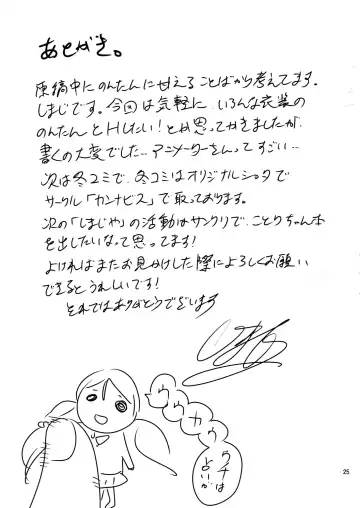 あとがき。
原稿中にのんたんに甘えることばかり考えてます。
しまじです。今回は気軽に、いろんな衣装の
のんたんとHしたい!とか思ってかきましたが、
書くの大変でした…アニメーターさんってすごい…
次は冬コミで、冬コミはオリジナルショタで
サークル「カンナビス」で取っております。
次の「しまじや」の活動はサンクリで、ことりちゃん本
を出したいなって思ってます!
よければまたお見かけした際によろしくお願い
できるとうれしいです!
それではありがとうでございます
ウチは
よいが
25